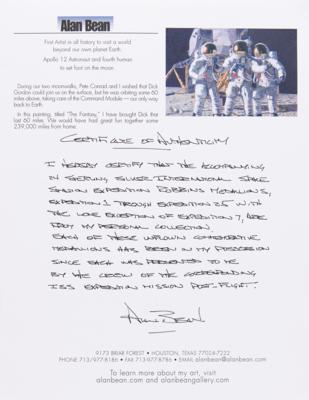 Alan Bean
First Artist in all history to visit a world
beyond our own planet Earth.
Apollo 12 Astronaut and fourth human
to set foot on the moon.
During our two moonwalks, Pete Conrad and I wished that Dick
Gordon could join us on the surface, but he was orbiting some 60
miles above, taking care of the Command Module — our only way
back to Earth.
In this painting, titled "The Fantasy," I have brought Dick that
last 60 miles. We would have had great fun together some
239,000 miles from home.
CERTIFICATE OF AUTHENTICITY
I HEREBY CERTIFY THAT THE ACCOMPANYING
STERLING SILVER INTERNATIONAL SPACE
STATION EXPEDITION ROBBINS MEDALLIONS,
EXPEDITION 1 THROUGH EXPEDITION 25 WITH
THE LONE EXCEPTION OF EXPEDITION 7, ARE
FROM MY PERSONAL COLLECTION.
EACH OF THESE UNFLOWN COMMEMORATIVE
MEDALLIONS HAS BEEN IN MY POSSESSION
SINCE EACH WAS PRESENTED TO ME
BY THE CREW OF THE CORRESPONDING
ISS EXPEDITION MISSION POST-FLIGHT.
Alan Bean
9173 BRIAR FOREST • HOUSTON, TEXAS 77024-7222
PHONE 713/977-8186 • FAX 713-977-8786 • EMAIL alanbean@alanbean.com
To learn more about my art, visit
alanbean.com and alanbeangallery.com